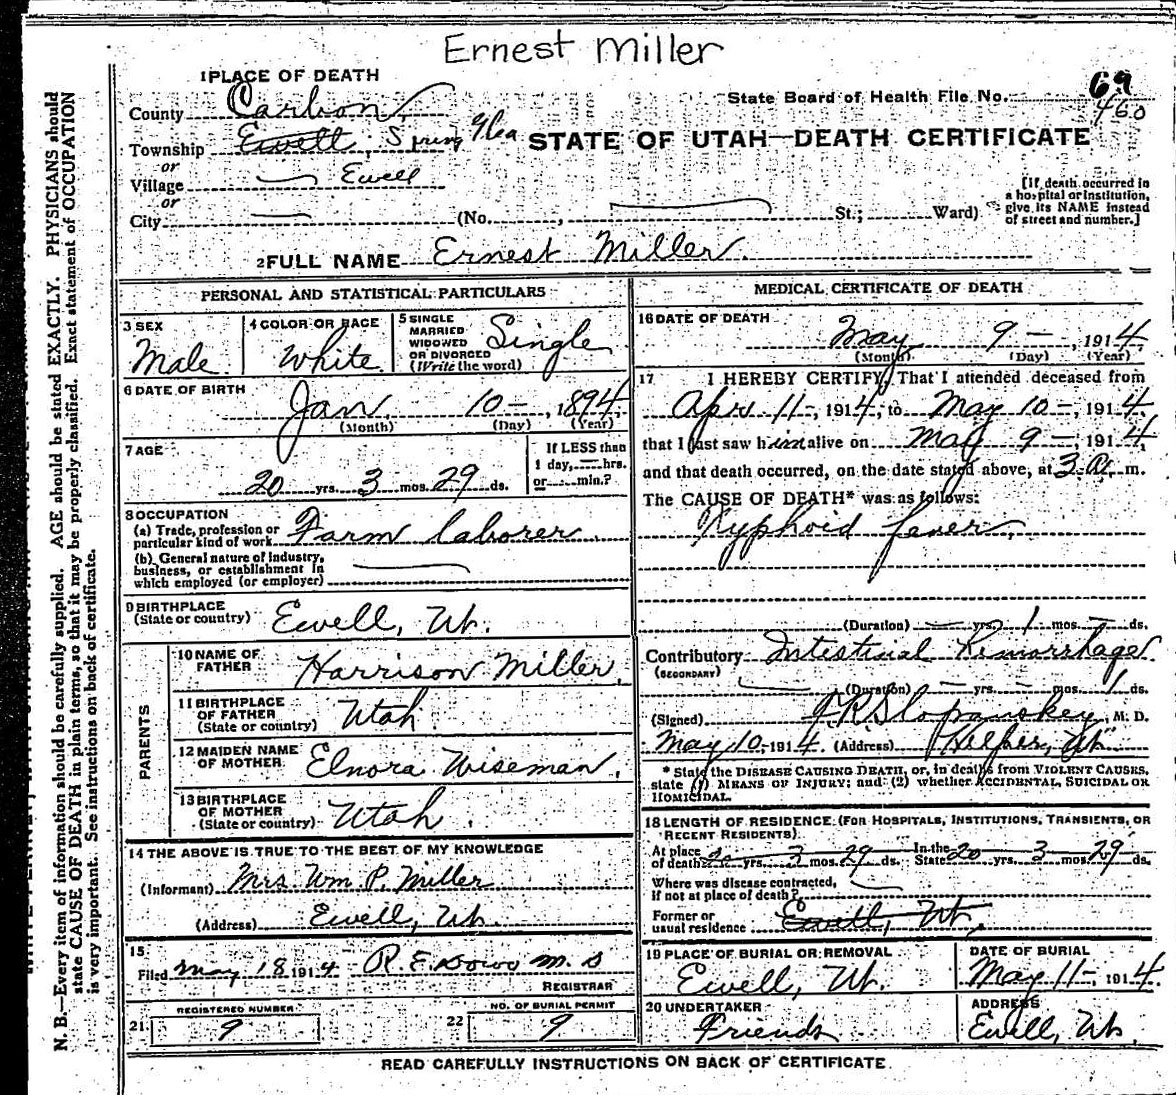 Ernest Miller
1 PLACE OF DEATH
County Carbon
State Board of Health File No. 69
460
Township Ewell, Spring Glen
STATE OF UTAH—DEATH CERTIFICATE
or
Village — Ewell
or
City — (No. , St.; Ward)
[If death occurred in a hospital or institution, give its NAME instead of street and number.]
2 FULL NAME Ernest Miller.
PERSONAL AND STATISTICAL PARTICULARS
3 SEX Male
4 COLOR OR RACE White
5 SINGLE MARRIED WIDOWED OR DIVORCED (Write the word) Single
6 DATE OF BIRTH
Jan. 10 — , 1894,
(Month) (Day) (Year)
7 AGE
20 yrs. 3 mos. 29 ds.
If LESS than
1 day, — hrs.
or — min.?
8 OCCUPATION
(a) Trade, profession or
particular kind of work Farm laborer.
(b) General nature of industry,
business, or establishment in
which employed (or employer)
9 BIRTHPLACE
(State or country) Ewell, Ut.
PARENTS
10 NAME OF
FATHER Harrison Miller.
11 BIRTHPLACE
OF FATHER
(State or country) Utah
12 MAIDEN NAME
OF MOTHER Elnora Wiseman.
13 BIRTHPLACE
OF MOTHER
(State or country) Utah.
14 THE ABOVE IS TRUE TO THE BEST OF MY KNOWLEDGE
(Informant) Mrs. Wm P. Miller
(Address) Ewell, Ut.
15
Filed May 18 1914
REGISTRAR
REGISTERED NUMBER
21 9
NO. OF BURIAL PERMIT
22 9
MEDICAL CERTIFICATE OF DEATH
16 DATE OF DEATH
May 9 — , 1914
(Month) (Day) (Year)
17 I HEREBY CERTIFY, That I attended deceased from
Apr 11 —, 1914, to May 10 —, 1914.
that I last saw him alive on May 9 —, 1914,
and that death occurred, on the date stated above, at 3 A. m.
The CAUSE OF DEATH* was as follows:
Typhoid fever.
(Duration) — yrs. 1 mos. — ds.
Contributory Intestinal Hemorrhage
(SECONDARY)
(Duration) — yrs. — mos. 1 ds.
(Signed) , M. D.
May 10 - 1914. (Address) Helper, Ut.
* State the DISEASE CAUSING DEATH, or, in deaths from VIOLENT CAUSES,
state (1) MEANS OF INJURY; and (2) whether ACCIDENTAL, SUICIDAL OR
HOMICIDAL.
18 LENGTH OF RESIDENCE (FOR HOSPITALS, INSTITUTIONS, TRANSIENTS, OR
RECENT RESIDENTS)
At place
of death yrs. 3 mos. 29 ds. In the State 20 yrs. 3 mos. 29 ds.
Where was disease contracted,
if not at place of death?
Former or
usual residence Ewell, Ut.
19 PLACE OF BURIAL OR REMOVAL
Ewell, Ut.
DATE OF BURIAL
May 11 —, 1914.
20 UNDERTAKER
Friends
ADDRESS
Ewell, Ut.
READ CAREFULLY INSTRUCTIONS ON BACK OF CERTIFICATE.
N. B.—Every item of information should be carefully supplied. AGE should be stated EXACTLY. PHYSICIANS should
state CAUSE OF DEATH in plain terms, so that it may be properly classified. Exact statement of OCCUPATION
is very important. See instructions on back of certificate.